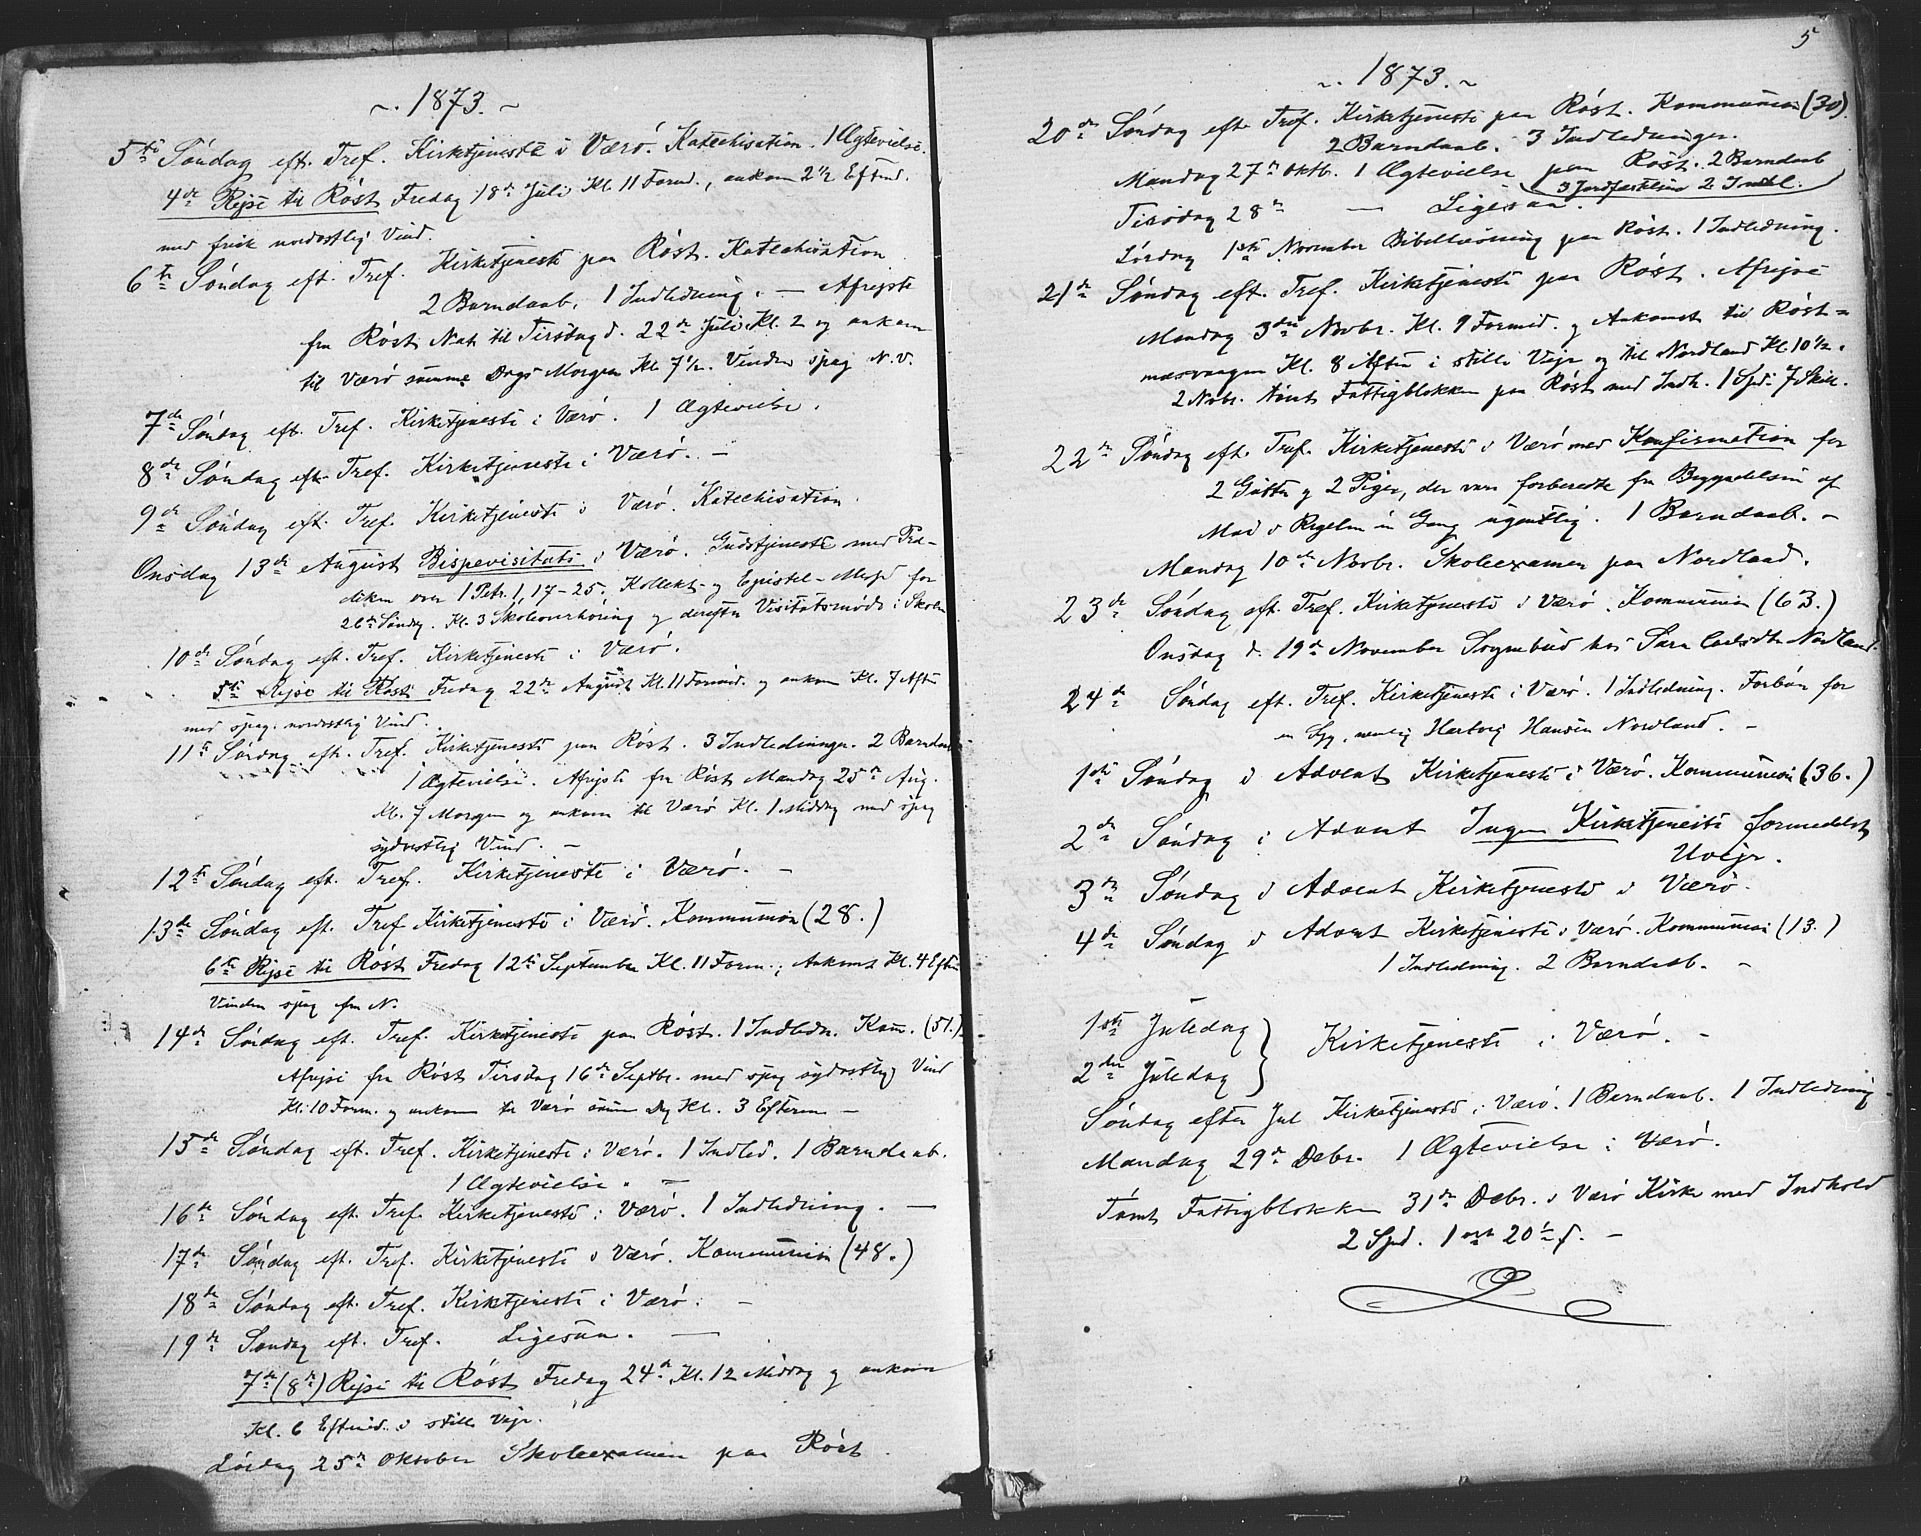 ~. 1873. ~
5te Søndag eft. Tref. Kirketjeneste i Værø. Katechisation. 1 Ægtevielse.
4de Rejse til Røst Fredag 18de Juli Kl. 11 Formd., ankom 2½ Eftmd.
med frisk nordostlig Vind.
6te Søndag eft. Tref. Kirketjeneste paa Røst. Katechisation
2 Barndaab, 1 Indledning. — Afrejste
fra Røst Nat til Tirsdag d. 22de Juli Kl. 2 og ankom
til Værø samme Dags Morgen Kl 7½. Vinden spag N.V.
7de Søndag eft. Tref. Kirketjeneste i Værø. 1 Ægtevielse.
8de Søndag eft. Tref. Kirketjeneste i Værø. —
9de Søndag eft. Tref. Kirketjeneste i Værø. Katechisation.
Onsdag 13de August Bispevisitats i Værø. Gudstjeneste med Præ-
diken over 1 Petr. 1, 17-25. Kollekt- og Epistel-Messe for
26de Søndag. Kl. 3 Skoleoverhøring og derefter Visitatsmøde i Skolen
10de Søndag eft. Tref. Kirketjeneste i Værø.
5te Rejse til Røst Fredag 22de August Kl. 11 Formd. og ankom Kl. 7 Aften
med spag nordostlig Vind.
11te Søndag eft. Tref. Kirketjeneste paa Røst. 3 Indledninger. 2 Barndaab
1 Ægtevielse. Afrejste fra Røst Mandag 25de Aug.
Kl. 7 Morgen og ankom til Værø Kl. 1 Middag med spag
sydvestlig Vind. —
12te Søndag eft. Tref. Kirketjeneste i Værø. —
13de Søndag eft. Tref Kirketjeneste i Værø. Kommunion (28.)
6te Rejse til Røst Fredag 12te September Kl. 11 Form., Ankomst Kl. 4 Eftm
Vinden spag fra N.
14de Søndag eft. Tref. Kirketjeneste paa Røst. 1 Indledn. Kom. (51.)
Afrejse fra Røst Tirsdag 16de Septbr. med spag sydostlig Vind
Kl. 10 Form. og ankom til Værø samme Dag Kl. 3 Efterm —
15de Søndag eft. Tref. Kirketjeneste i Værø. 1 Indled. 1 Barndaab.
1 Ægtevielse. —
16de Søndag eft. Tref. Kirketjeneste i Værø. 1 Indledning. —
17de Søndag eft. Tref. Kirketjeneste i Værø. Kommunion (48.)
18de Søndag eft. Tref. Kirketjeneste i Værø. —
19de Søndag eft. Tref. Ligesaa. —
7de (8de) Rejse til Røst Fredag 24de Kl. 12 Middag og ankom
Kl. 6 Eftmid. i stille Vejr.
Lørdag 25de Oktober Skoleexamen paa Røst.
5
~. 1873. ~
20de Søndag eft. Tref. Kirketjeneste paa Røst. Kommunion (30).
2 Barndaab. 3 Indledninger.
Mandag 27de Oktb. 1 Ægtevielse paa Røst. 2 Barndaab
3 Jordfæstelser 2 Indl.
Tirsdag 28de — Ligesaa.
Lørdag 1ste November Bibellæsning paa Røst. 1 Indledning.
21de Søndag eft. Tref. Kirketjeneste paa Røst. Afrejse
Mandag 3die Novbr. Kl. 9 Formid. og Ankomst til Røst-
næsvaagen Kl. 8 Aften i stille Vejr og til Nordland Kl. 10½.
2 Novbr. tømt Fattigblokken paa Røst med Indh. 1 Spd. 7 Skill.
22de Søndag eft. Tref. Kirketjeneste i Værø med Konfirmation for
2 Gutter og 2 Piger, der vare forberedte fra Begyndelsen af
Mad i Regelen en Gang ugentlig. 1 Barndaab. —
Mandag 10de Novbr. Skoleexamen paa Nordland.
23de Søndag eft. Tref. Kirketjeneste i Værø. Kommunion (63.)
Onsdag d. 19de November Sognebud hos Sara Carlsdtr. Nordland.
24de Søndag eft. Tref. Kirketjeneste i Værø. 1 Indledning. Forbøn for
en Syg, nemlig Hartvig Hansen Nordland. —
1ste Søndag i Advent Kirketjeneste i Værø. Kommunion (36.)
2de Søndag i Advent Ingen Kirketjeneste formedelst
Uvejr.
3de Søndag i Advent Kirketjeneste i Værø.
4de Søndag i Advent Kirketjeneste i Værø. Kommunion (13.)
1 Indledning. 2 Barndaab. —
1ste Juledag
2den Juledag } Kirketjeneste i Værø. —
Søndag efter Jul Kirketjeneste i Værø. 1 Barndaab. 1 Indledning
Mandag 29de Debr. 1 Ægtevielse i Værø.
Tømt Fattigblokken 31de Debr. i Værø Kirke med Indhold
2 Spd. 1 ort 20½ ß. —